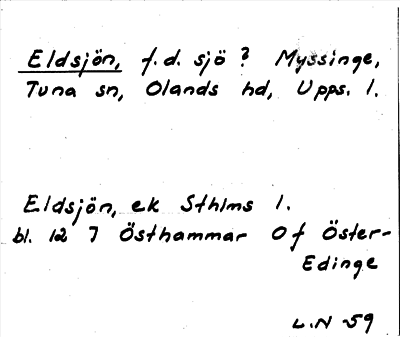 Eldsjön, f.d. sjö? Myssinge,
Tuna sn, Olands hd, Upps. l.
Eldsjön, ek Sthlms l.
bl. 12 7 Östhammar Of Öster-
Edinge
L.N -59